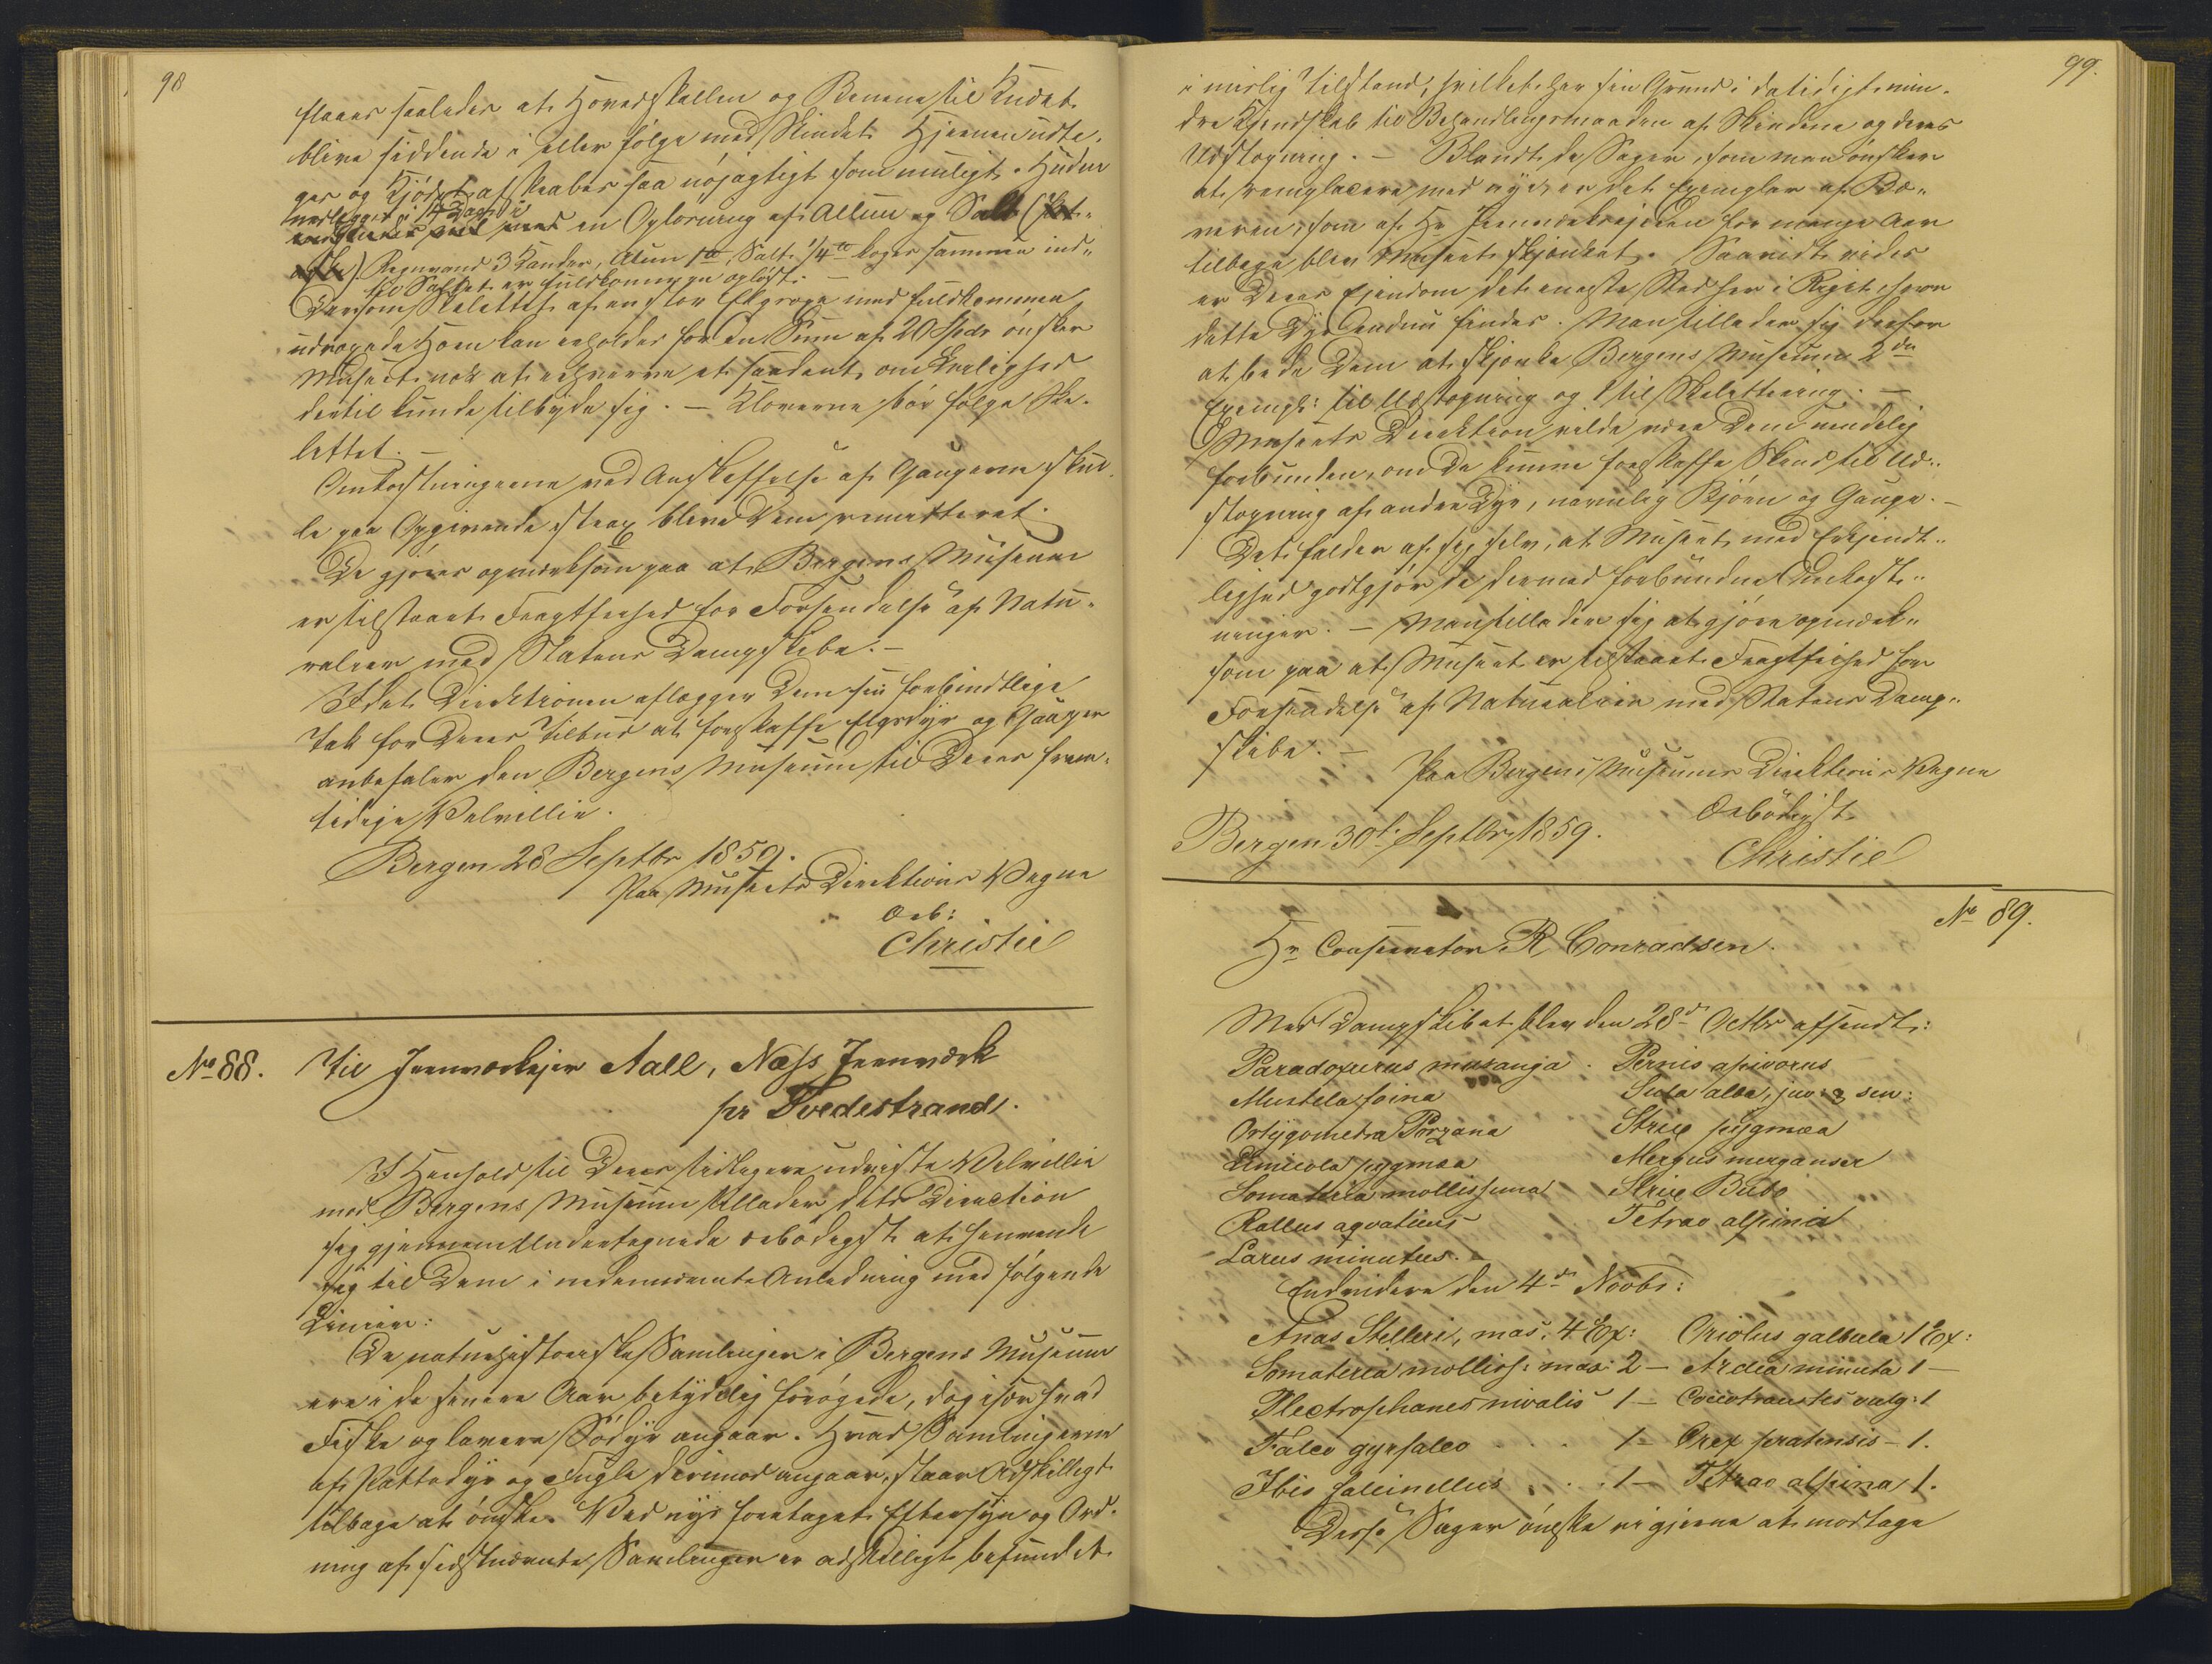 98
flaaes saaledes at Hovedskallen og Benene til Knæet
blive siddende i eller følge med Skindet. Hjernen udta-
ges og Kjødet afskrabes saa nøjagtigt som muligt. Huden
nedlægges i 14 Dage i
en Opløsning af Allun og Salt
Regnvand 3 Kander, Alun 1 ℔, Salt 1/4 ℔ koges sammen ind-
til Saltet er fuldkommen opløst. —
Dersom Skelettet af en stor Elgoxe med fuldkommen
udvoxede Horn kan erholdes for en Sum af 20 Spdr ønsker
Museet nok at erhverve et saadant, om Leilighed
dertil kunde tilbyde sig. — Kloverne bør følge Ske-
lettet. —
Omkostningerne ved Anskaffelse af Gauperne skul-
le paa Opgivende strax blive Dem remitteret.
De gjøres opmærksom paa at Bergens Museum
er tilstaaet Fragtfrihed for Forsendelse af Natu-
ralier med Statens Dampskibe. —
Idet Direktionen aflægger Dem sin forbindtlige
Tak for Deres Tilbud at forskaffe Elgsdyr og Gauper
anbefaler den Bergens Museum til Deres frem-
tidige Velvillie.
Bergen 28 Septbr 1859.
Paa Museets Direktions Vegne
Ærb:
Christie
No 88. Til Jernværkejer Aall, Næss Jernværk
pr Tvedestrand.
I Henhold til Deres tidligere udviste Velvillie
mod Bergens Museum tillader dets Direction
sig gjennem Undertegnede ærbødigst at henvende
sig til Dem i nedennævnte Anledning med følgende
Linier:
De naturhistoriske Samlinger i Bergens Museum
ere i de senere Aar betydelig forøgede, dog især hvad
Fiske og lavere Sødyr angaar. Hvad Samlingerne
af Pattedyr og Fugle derimod angaar, staar Adskilligt
tilbage at ønske. Ved nys foretaget Eftersyn og Ord-
ning af sidstnævnte Samlinger er adskilligt befundet
99.
i mislig Tilstand, hvilket har sin Grund i datidigt min-
dre Kjendskab til Behandlingsmaaden af Skindene og deres
Udstopning. — Blandt de Sager, som man ønsker
at remplacere med nye, er det Exemplar af Bæ-
veren, som af Hr Jernværksejeren for mange Aar
tilbage blev Museet skjænket. Saavidt vides
er Deres Ejendom det eneste Sted her i Riget, hvor
dette Dyr endnu findes. Man tillader sig derfor
at bede Dem at skjænke Bergens Museum 2de
Exempl: til Udstopning og 1 til Skelettering. —
Museets Direktion vilde være Dem uendelig
forbunden, om De kunne forskaffe Skind til Ud-
stopning af andre Dyr, navnlig Bjørn og Gaupe. —
Det falder af sig selv, at Museet med Erkjendt-
lighed godtgjør de dermed forbundne Omkost-
ninger. — Man tillader sig at gjøre opmærk-
som paa at Museet er tilstaaet Fragtfrihed for
Forsendelse af Naturalier med Statens Damp-
skibe. —
Paa Bergens Museums Direktions Vegne
Ærbødigst
Bergen 30t Septbr 1859.
Christie
No 89.
Hr Conservator R Conradsen.
Med Dampskibet blev den 28de Octbr afsendt:
Paradoxurus musanga. Pernis apivorus
Mustela foina Sula alba, juv: & sen:
Ortygometra Porzana Strix pygmæa
Limicola pygmæa Mergus merganser
Somateria mollissima Strix Bubo
Rallus aqvaticus Tetrao alpina
Larus minutus.
Endvidere den 4de Novbr:
Anas Stelleri, mas, 4 Ex: Oriolus galbula 1 Ex:
Somateria molliss: mas: 2 — Ardea minuta 1 —
Plectrophanes nivalis 1 — Coccotraustes vulg: 1
Falco gyrfalco . . . 1 — Crex pratensis — 1.
Ibis falcinellus . . . 1 — Tetrao alpina 1.
Disse Sager ønske vi gjerne at modtage